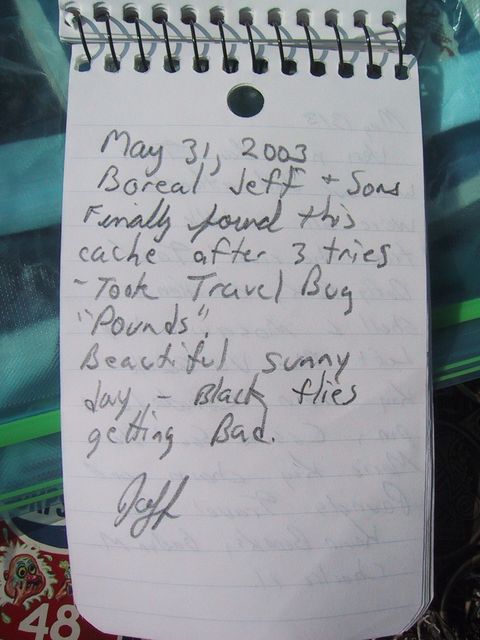 May 31, 2003
Boreal Jeff + Sons
Finally found this
cache after 3 tries
- Took Travel Bug
"Pounds".
Beautiful sunny
day - Black flies
getting Bad.
Jeff
48